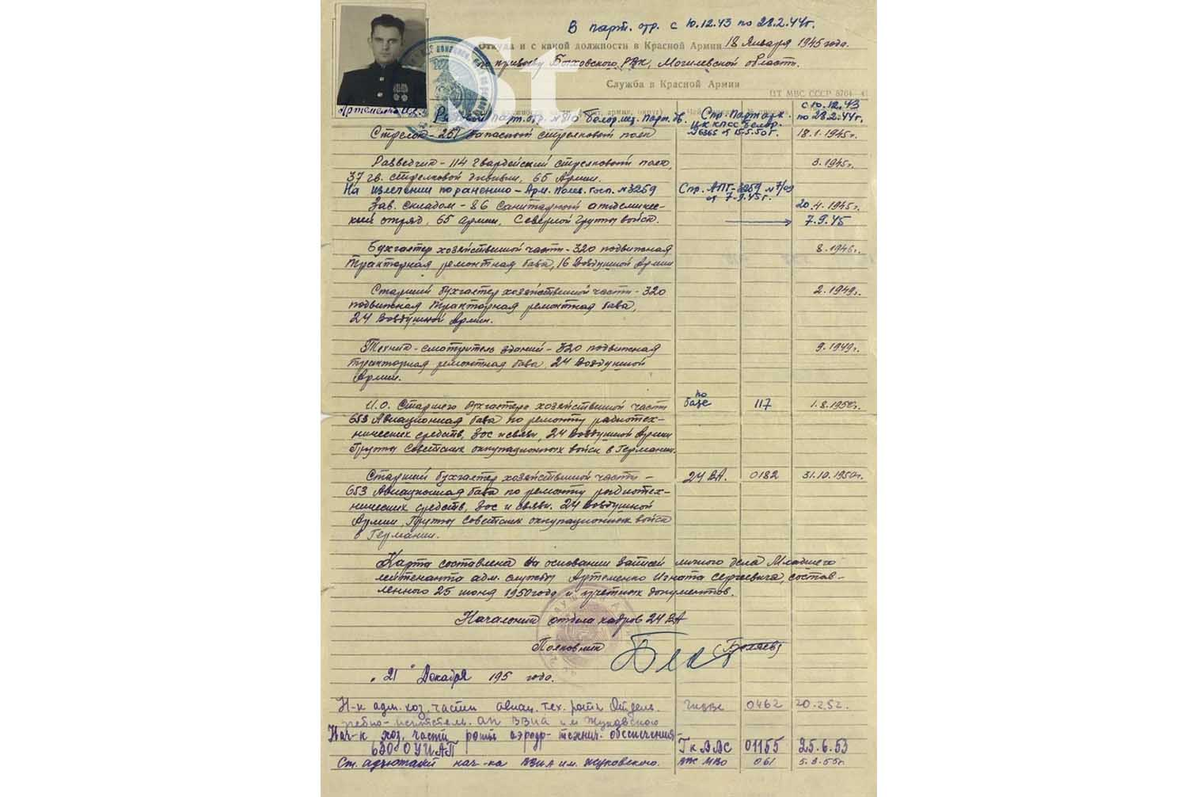 В парт. отр. с 10.12.43 по 28.2.44г.
Откуда и с какой должности в Красной Армии 18 Января 1945 года.
по призыву Быховского РВК, Могилевской область.
Служба в Красной Армии
St
ЦТ МВС СССР 8704—4
Артеменко И.С.
парт. отр. №810 Белор. Спр. Парт. арх. с 10.12.43
ЦК КПСС Белор. по 28.2.44г.
Стрелок - 257 Запасной стрелковый полк 18.1.1945г.
Разведчик - 114 Гвардейский стрелковый полк, 3.1945г.
37 гв. стрелковой дивизии, 65 Армии.
На излечении по ранению - Арм. Полев. Госп. №3259 Спр. АПГ-3259 №7/09
от 7.9.45г.
Зав. складом - 86 Санитарной отдел 20.4.1945г.
отряд, 65 Армии, Северной Группы войск. 7.9.45
Бухгалтер хозяйственной части - 320 подвижная 8.1946г.
Тракторная ремонтная база, 16 Воздушной Армии
Старший бухгалтер хозяйственной части - 320 2.1949г.
подвижная Тракторная ремонтная база,
24 Воздушной Армии.
Техник-смотритель зданий - 320 подвижная 9.1949г.
Тракторная ремонтная база, 24 Воздушной
Армии.
И.О. Старшего бухгалтера хозяйственной части по базе 117 1.8.1950г.
653 Авиационная база по ремонту радиотех-
нических средств, Зос и связи, 24 Воздушной Армии
Группы Советских оккупационных войск в Германии.
Старший бухгалтер хозяйственной части - 24 ВА. 0182 31.10.1950г.
653 Авиационная база по ремонту радиотех-
нических средств, Зос и связи. 24 Воздушной
Армии, Группы Советских оккупационных войск
в Германии.
Карта составлена на основании записей личного дела Младшего
лейтенанта адм. службы Артеменко Игната Сергеевича, состав-
ленного 25 июня 1950 года и учетных документов.
Начальник отдела кадров 24 ВА
Полковник (Беляев)
"21" Декабря 195 года.
Н-к адм. хоз. части авиац. тех. роты Отдель. 0462 20.2.52г.
учебно- АП ВВИА им Жуковского
Нач-к хоз. части роты аэродр-технич. обеспечения-
630 ОУИАП Гк ВВС 01155 25.6.53
Ст. адъютант нач-ка ВВИА им. Жуковского. ВВС МВО 061 5.3.55г.